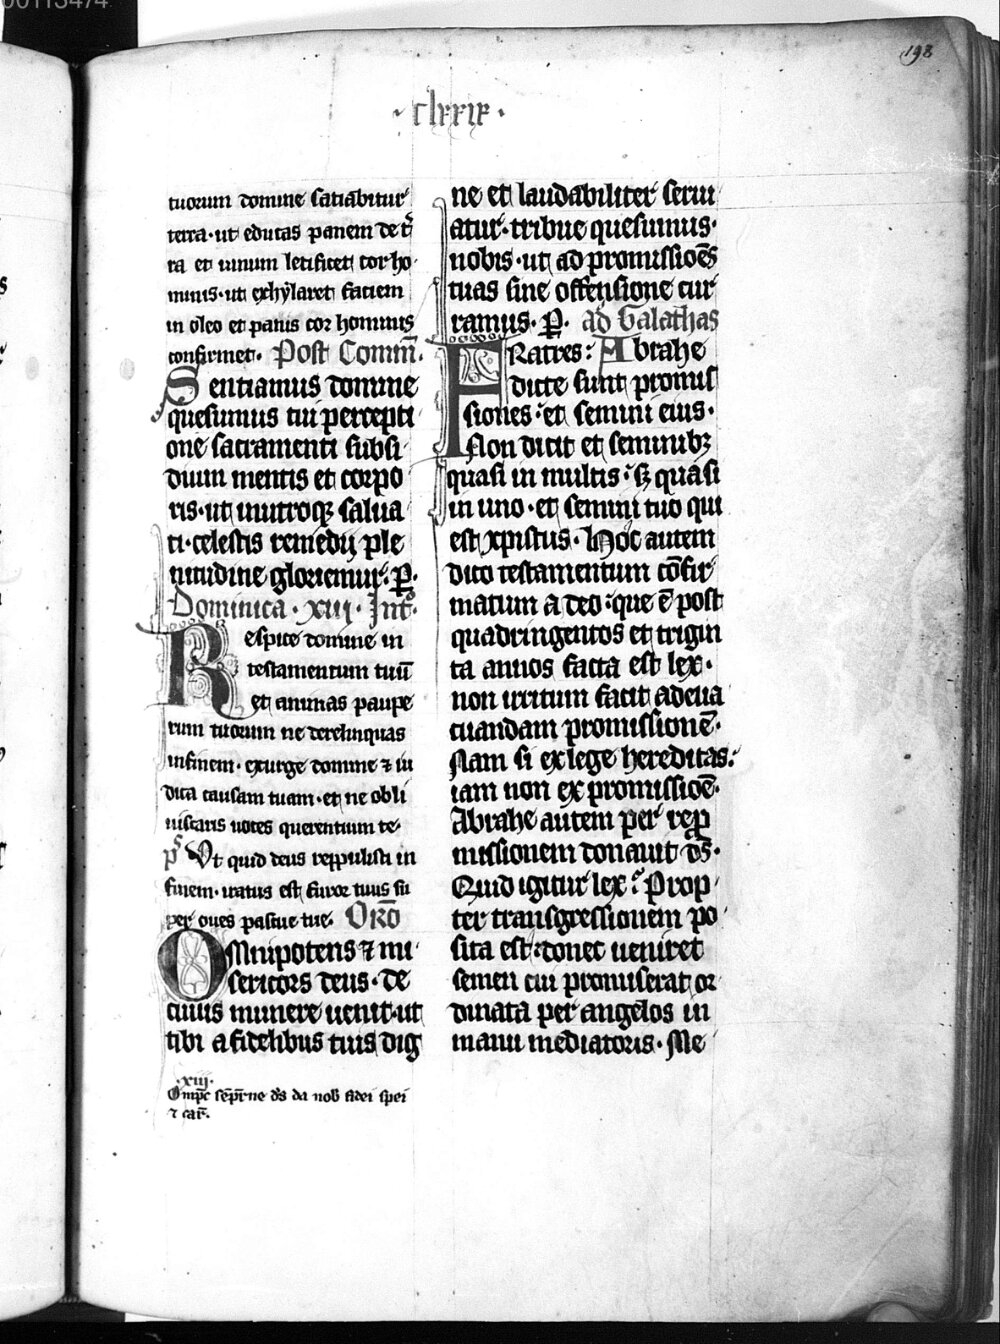 198
·clxxix·
tuorum domine satiabitur
terra·ut educas panem de t̄
ra et uinum letificet cor ho
minis·ut exhylaret faciem
in oleo et panis cor hominis
confirmet. Post Comm̄.
Sentiamus domine
quesumus tui percepti
one sacramenti subsi
dium mentis et corpo
ris·ut inutroqꝫ salua
ti·celestis remedij ple
nitudine gloriemur. P̄.
Dominica·xiii·Int᷑.
Respice domine in
testamentum tuū
et animas paupe
rum tuorum ne derelinquas
infinem·exurge domine ⁊ iu
dica causam tuam·et ne obli
uiscaris uoces querentium te·
p̄s Vt quid deus reppulisti in
finem·iratus est furor tuus su
per oues pascue tue. Oro̅
Omnipotens ⁊ mi
sericors deus·de
cuius munere uenit·ut
tibi a fidelibus tuis dig
·xiij·
Omp̄c sēpr̄ne ds̄ da nob̄ fidei spei
⁊ car̄.
ne et laudabiliter serui
atur·tribue quesumus·
nobis·ut ad promissiōēs
tuas sine offensione cur
ramus. P̄. ad Galathas
Fratres: Abrahe
dicte sunt promis
siones:et semini eius·
Non dicit et seminibꝫ
quasi in multis:sꝫ quasi
in uno·et semini tuo qui
est xpistus. Hoc autem
dico testamentum cōfir
matum a deo:que ē post
quadringentos et trigin
ta annos facta est lex·
non irritum facit adeua
cuandam promissionē·
Nam si ex lege hereditas:
iam non ex promissioē·
Abrahe autem per rep̄
missionem donauit ds̄·
Quid igitur lex? Prop
ter transgressionem po
sita est:donec ueniret
semen cui promiserat or
dinata per angelos in
manu mediatoris. Me